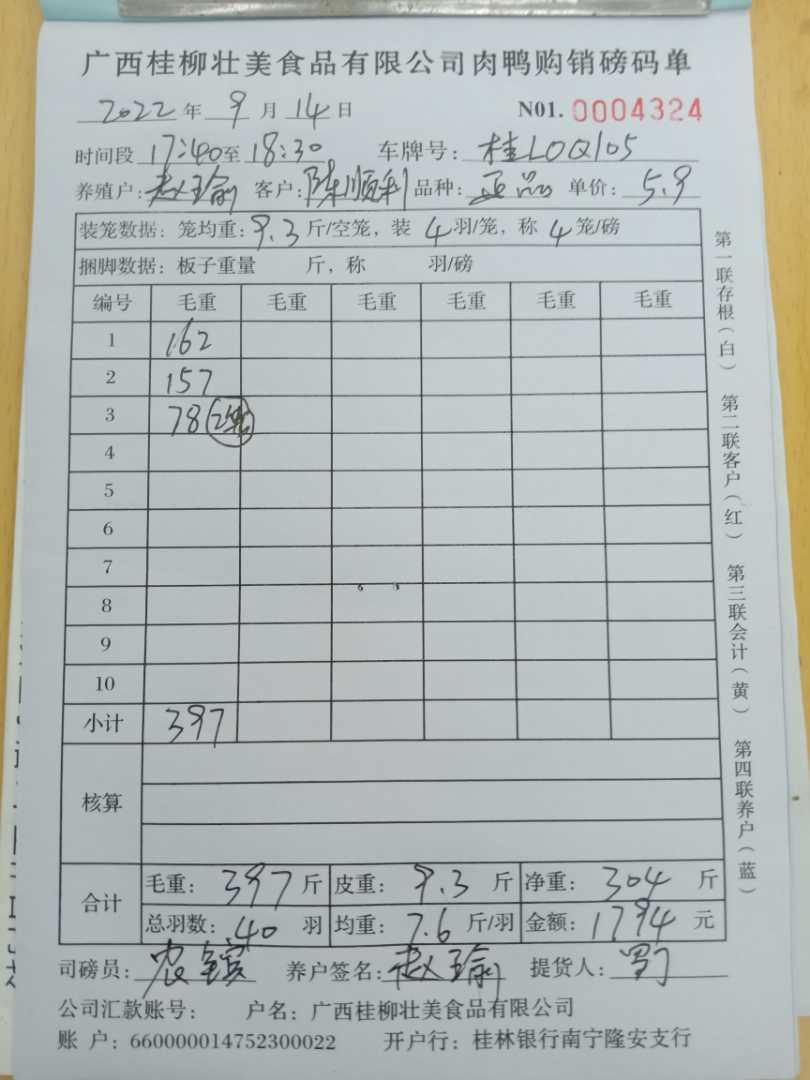 广西桂柳壮美食品有限公司肉鸭购销磅码单
2022年9月14日 N01. 0004324
时间段 17:40至18:30 车牌号: 桂L0Q105
养殖户: 赵瑜 客户: 陈顺利 品种: 正品 单价: 5.9
装笼数据: 笼均重: 9.3 斤/空笼, 装 4 羽/笼, 称 4 笼/磅
捆脚数据: 板子重量 斤, 称 羽/磅
编号 毛重 毛重 毛重 毛重 毛重 毛重
1 162
2 157
3 78 2笼
4
5
6
7
8
9
10
小计 397
核算
合计 毛重: 397 斤 皮重: 9.3 斤 净重: 304 斤
总羽数: 40 羽 均重: 7.6 斤/羽 金额: 1794 元
司磅员: 农 养户签名: 赵瑜 提货人:
公司汇款账号: 户名: 广西桂柳壮美食品有限公司
账 户: 660000014752300022 开户行: 桂林银行南宁隆安支行
第一联存根(白) 第二联客户(红) 第三联会计(黄) 第四联养户(蓝)